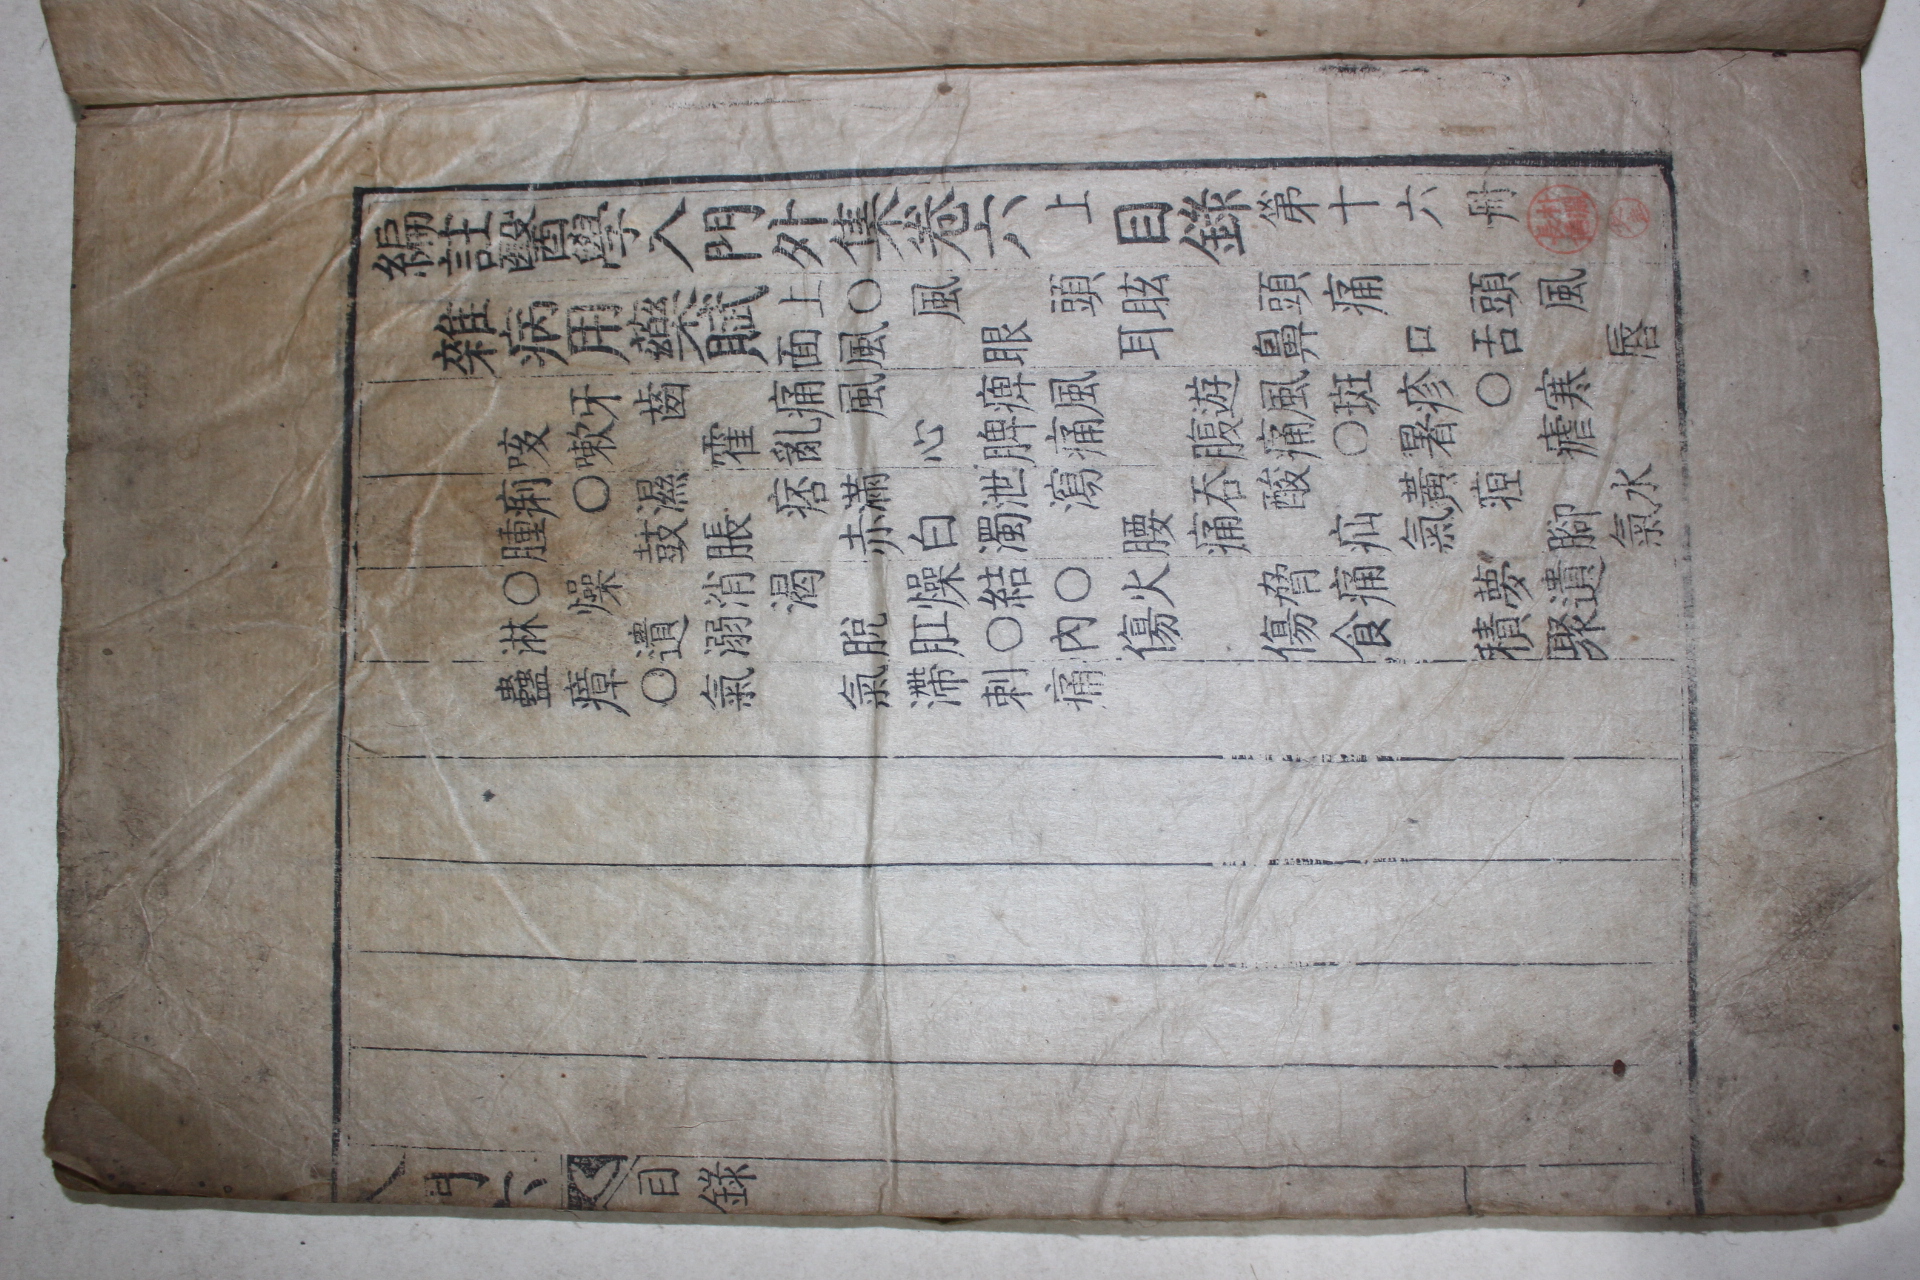 編註醫學入門外集卷六上目錄第十六冊
雜病用藥賦上○風頭眩頭痛頭風
面風眼耳鼻口舌唇
牙齒痛風痺風遊風斑疹○寒
咳嗽霍亂心脾痛腹痛○暑瘧
痢○濕痞滿泄瀉吞酸黃疸水
腫鼓脹赤白濁腰痛疝氣腳氣
○燥消渴燥結○火脅痛夢遺
淋遺溺脫肛○內傷傷食積聚
蠱瘴○氣氣滯刺痛
入門六 目錄